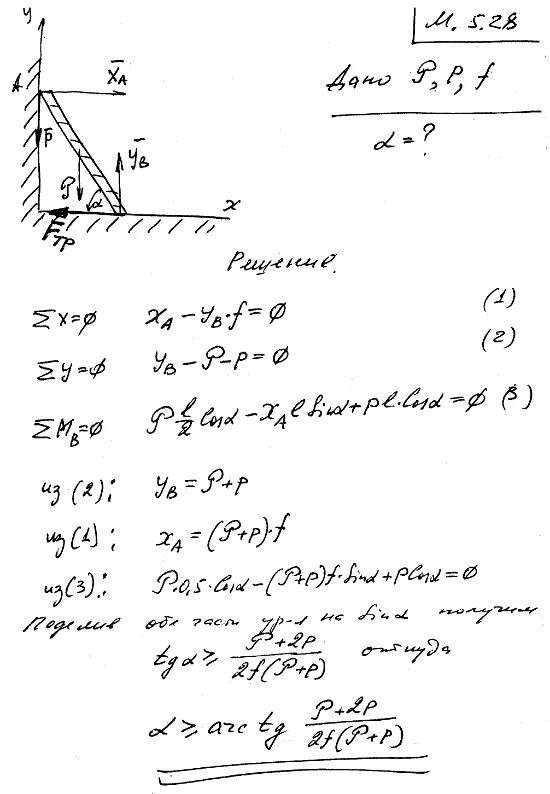 М. 5.28
Дано P, p, f
α = ?
y
A
X̄_A
p̄
Ȳ_B
P̄
α
x
F̄_тр
Решение.
ΣX=0 X_A – Y_B·f = 0 (1)
ΣY=0 Y_B – P – p = 0 (2)
ΣM_B=0 P l/2 cosα – X_A l sinα + pl·cosα = 0 (3)
из (2): Y_B = P+p
из (1): X_A = (P+p)·f
из (3): P·0,5·cosα – (P+p)f·sinα + pcosα = 0
Поделив обе части ур-я на sinα получим
tgα ≥ (P+2p)/(2f(P+p)) откуда
α ≥ arctg (P+2p)/(2f(P+p))